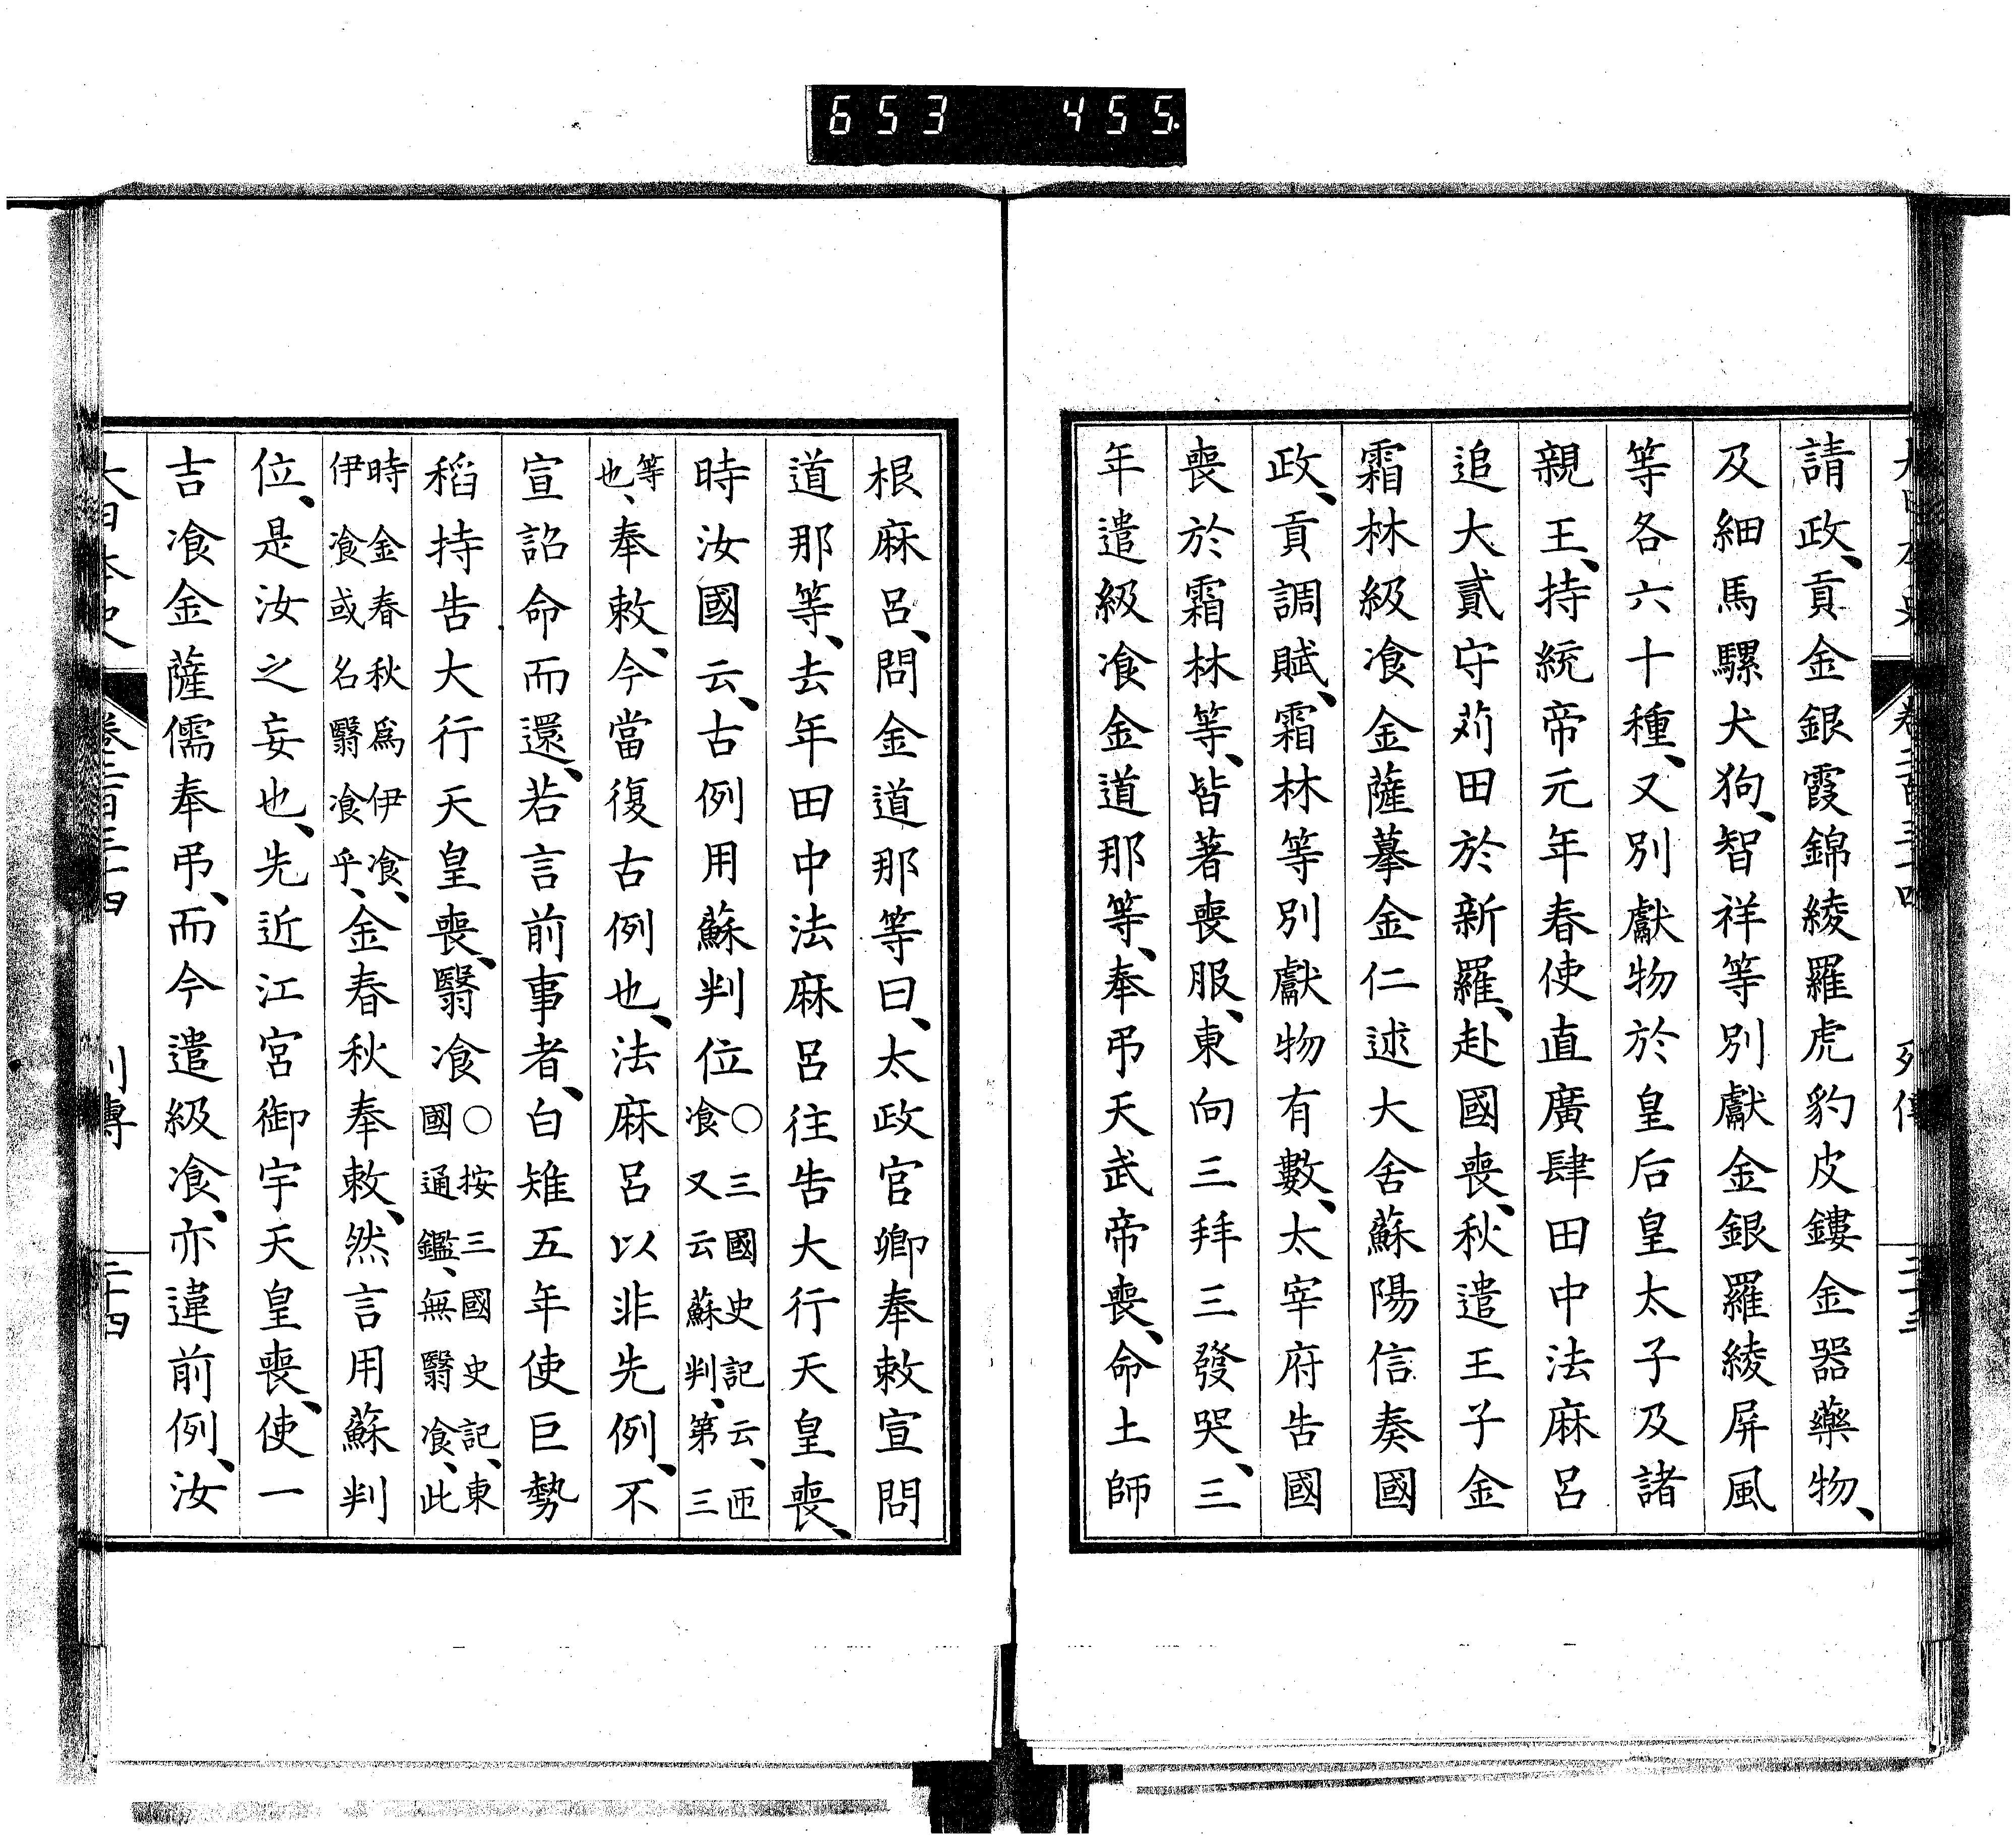 653 455.
大日本史 卷二百三十四 列傳 三十三
請政、貢金銀霞錦綾羅虎豹皮鏤金器藥物、
及細馬騾犬狗、智祥等別獻金銀羅綾屏風
等各六十種、又別獻物於皇后皇太子及諸
親王、持統帝元年春使直廣肆田中法麻呂
追大貳守苅田於新羅、赴國喪、秋遣王子金
霜林級飡金薩摹金仁述大舍蘇陽信奏國
政、貢調賦、霜林等別獻物有數、太宰府告國
喪於霜林等、皆著喪服、東向三拜三發哭、三
年遣級飡金道那等、奉弔天武帝喪、命土師
根麻呂、問金道那等曰、太政官卿奉敕宣問
道那等、去年田中法麻呂往告大行天皇喪、
時汝國云、古例用蘇判位○三國史記云、匝飡又云蘇判、第三
等也、奉敕、今當復古例也、法麻呂以非先例、不
宣詔命而還、若言前事者、白雉五年使巨勢
稻持告大行天皇喪、翳飡○按三國史記、東國通鑑、無翳飡、此
時金春秋爲伊飡、伊飡或名翳飡乎、金春秋奉敕、然言用蘇判
位、是汝之妄也、先近江宮御宇天皇喪、使一
吉飡金薩儒奉弔、而今遣級飡、亦違前例、汝
大日本史 卷二百三十四 列傳 三十四